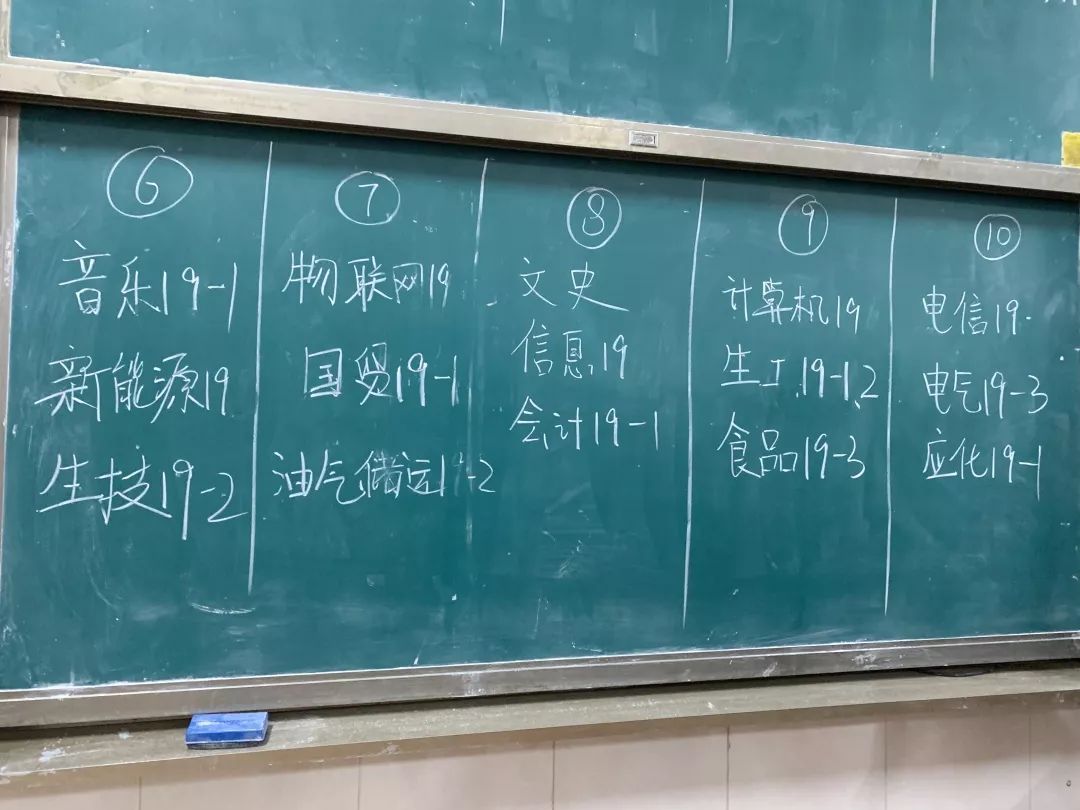 ⑥
音乐19-1
新能源19
生技19-2
⑦
物联网19
国贸19-1
油气储运19-2
⑧
文史
信息19
会计19-1
⑨
计算机19
生工19-1,2
食品19-3
⑩
电信19
电气19-3
应化19-1